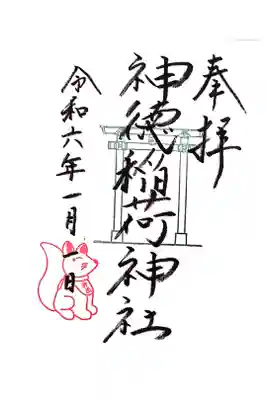 奉拝
神徳稲荷神社
令和六年一月一日